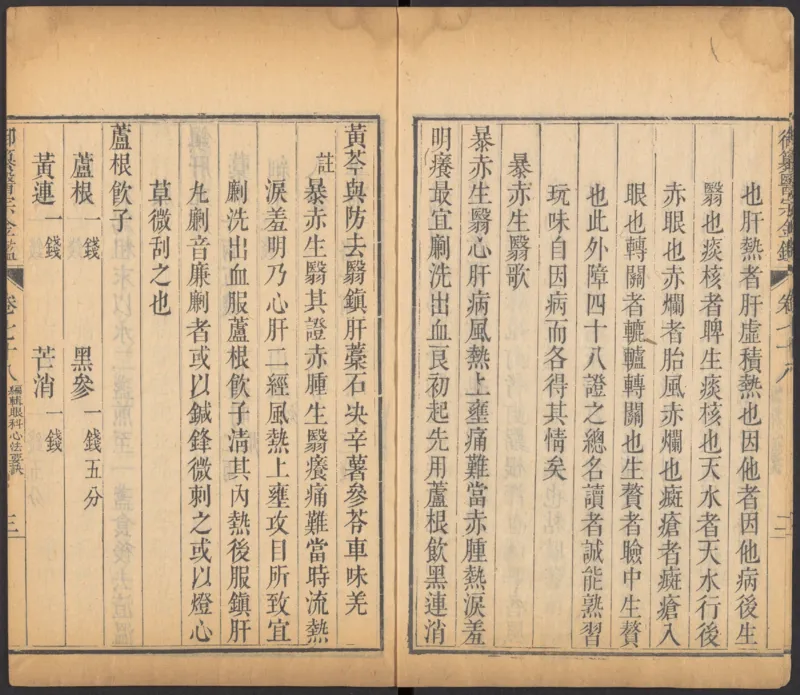 也肝熱者肝虛積熱也因他者因他病後生
翳也痰核者脾生痰核也天水者天水行後
赤眼也赤爛者胎風赤爛也癍瘡者癍瘡入
眼也轉關者轆轤轉關也生贅者瞼中生贅
也此外障四十八證之總名讀者誠能熟習
玩味自因病而各得其情矣
暴赤生翳歌
暴赤生翳心肝病風熱上壅痛難當赤腫熱淚羞
明癢最宜劆洗出血良初起先用蘆根飲黑連消
黃芩與防去翳鎮肝藁石決辛薯參苓車味羌
註 暴赤生翳其證赤腫生翳癢痛難當時流熱
淚羞明乃心肝二經風熱上壅攻目所致宜
劆洗出血服蘆根飲子清其內熱後服鎮肝
丸劆音廉劆者或以鍼鋒微刺之或以燈心
草微刮之也
蘆根飲子
蘆根一錢 黑參一錢五分
黃連一錢 芒消一錢
御纂醫宗金鑑 卷七十八 編輯眼科心法要訣 三